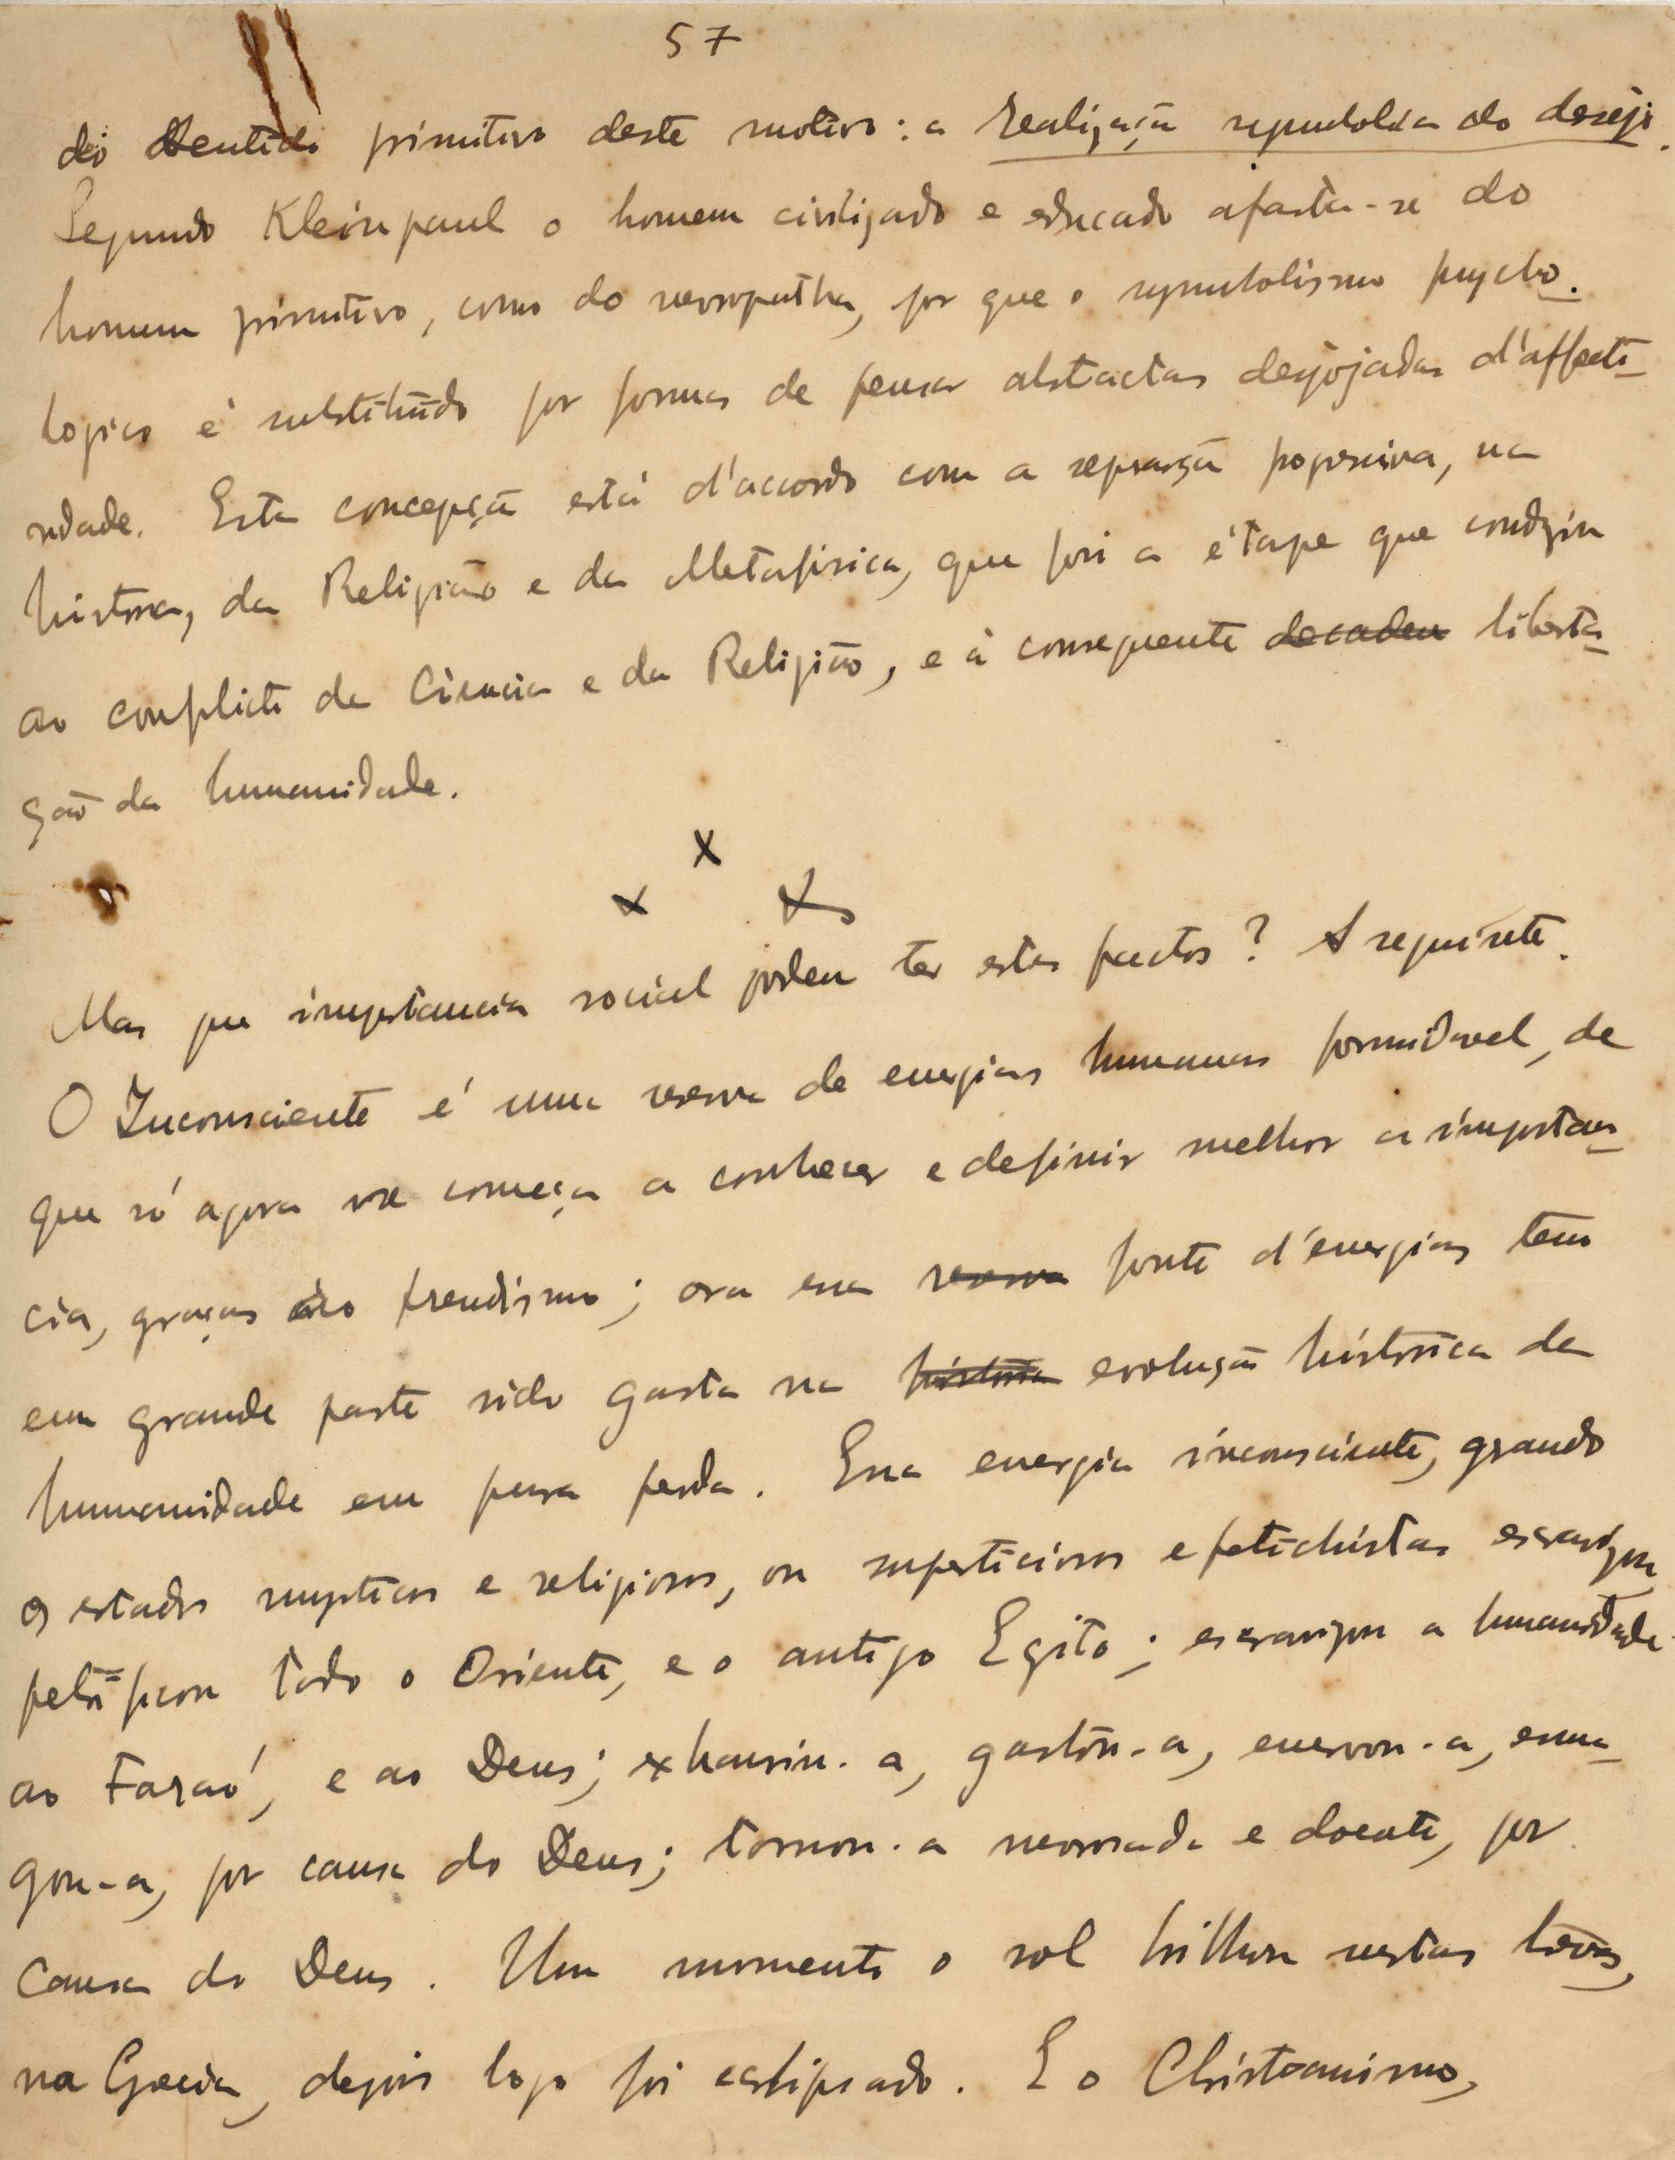 57
do sentido primitivo deste motivo: a realização symbolica do desejo.
Segundo Kleinpaul o homem civilizado e educado afasta-se do
homem primitivo, como do nevropatha, por que o symbolismo psycho-
logico é substituido por formas de pensar abstractas despojadas d'affecti-
vidade. Esta concepção está d'accordo com a separação progressiva, na
historia, da Religião e da Metafisica, que foi a étape que conduziu
ao conflicto da Ciencia e da Religião, e à consequente decaden liberta-
ção da humanidade.
x
x x
Mas que importancia social podem ter estes factos? A seguinte.
O Inconsciente é uma reserva de energias humanas formidavel, de
que só agora se começa a conhecer e definir melhor a importan-
cia, graças ao freudismo; ora essa reserva fonte d'energias tem
em grande parte sido gasta na historia evolução historica da
humanidade em pura perda. Essa energia inconsciente, creando
os estados mysticos e religiosos, ou supersticiosos e fetichistas escravizou
petrificou todo o Oriente, e o antigo Egito; escravizou a humanidade
ao Faraó, e ao Deus; exhauriu-a, gastou-a, enervou-a, esma-
gou-a, por causa do Deus; tornou-a nevrosada e doente, por
causa do Deus. Um momento o sol brilhou nestas trevas,
na Grecia, depois logo foi eclipsado. E o Christianismo,